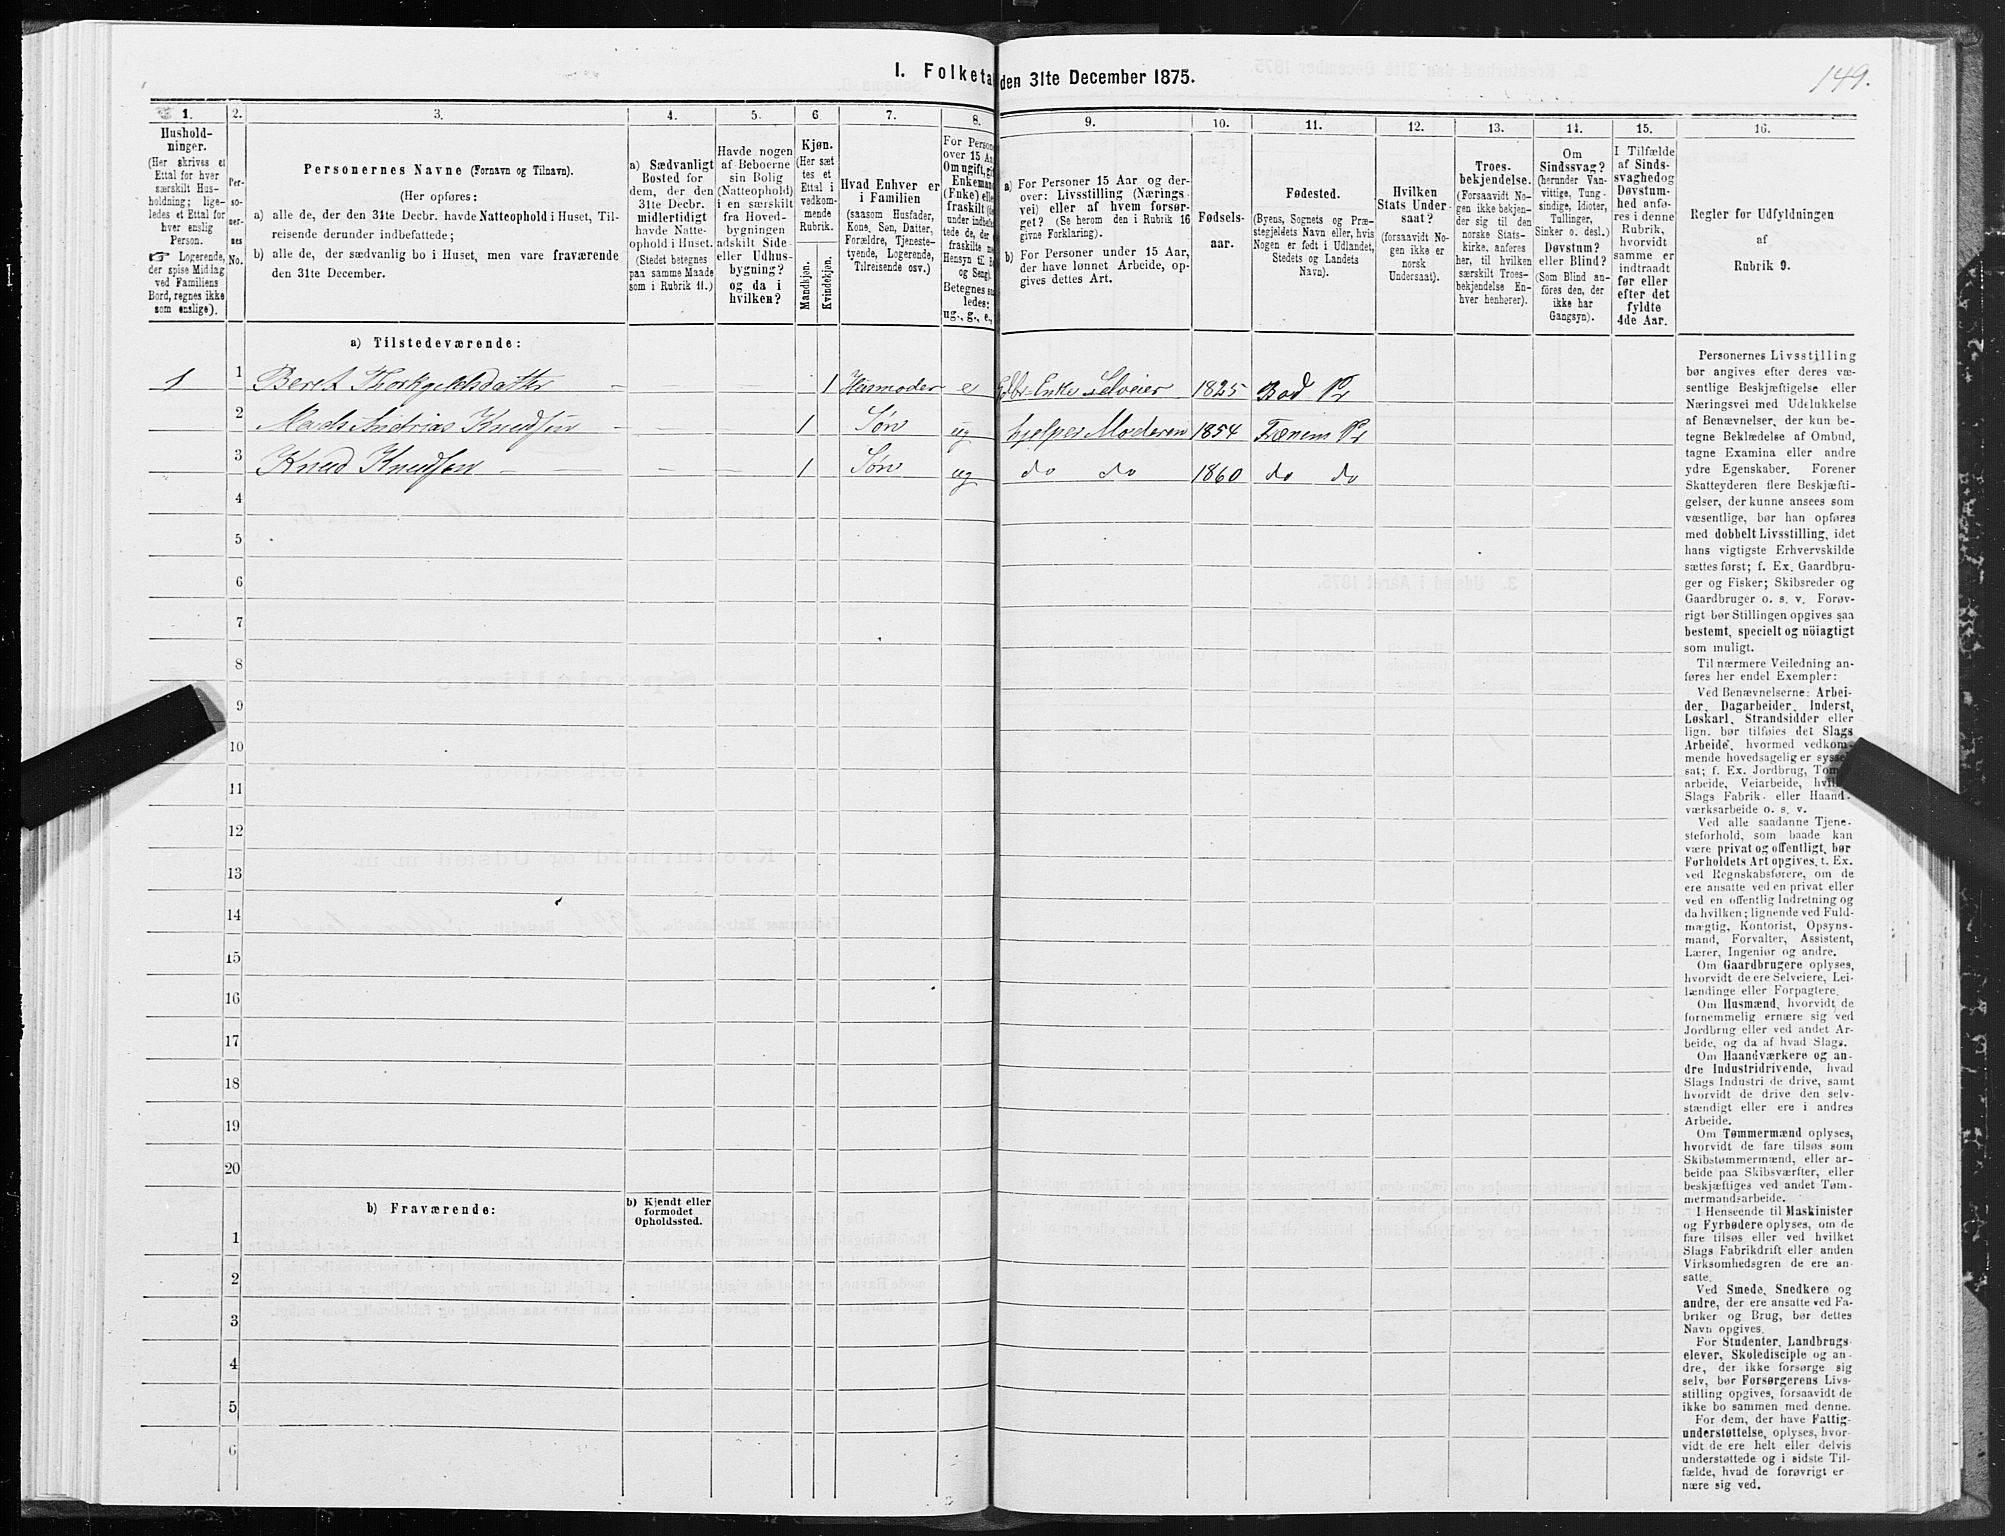 I. Folketa den 31te December 1875.
149.
1.
2.
3.
4.
5.
6
7.
8.
9.
10.
11.
12.
13.
14.
15.
16.
Hushold-
ninger.
(Her skrives et
Ettal for hver
særskilt Hus-
holdning; lige-
ledes et Ettal for
hver enslig
Person.
☞ Logerende,
der spise Middag
ved Familiens
Bord, regnes ikke
som enslige).
Per-
so-
ner-
nes
No.
Personernes Navne (Fornavn og Tilnavn).
(Her opføres:
a) alle de, der den 31te Decbr. havde Natteophold i Huset, Til-
reisende derunder indbefattede;
b) alle de, der sædvanlig bo i Huset, men vare fraværende
den 31te December.
a) Sædvanligt
Bosted for
dem, der den
31te Decbr.
midlertidigt
havde Natte-
ophold i Huset.
(Stedet betegnes
paa samme Maade
som i Rubrik 11.)
Havde nogen
af Beboerne
sin Bolig
(Natteophold)
i en særskilt
fra Hoved-
bygningen
adskilt Side-
eller Udhus-
bygning?
og da i
hvilken?
Kjøn.
(Her sæt
tes et
Ettal i
vedkom-
mende
Rubrik.
Mandkjøn.
Kvindekjøn.
Hvad Enhver er
i Familien
(saasom Husfader,
Kone, Søn, Datter,
Forældre, Tjeneste-
tyende, Logerende,
Tilreisende osv.)
For Person
over 15 Aa
Om ugift, gi
Enkemand
(Enke) elle
fraskilt (
under indbefat
tede de, der
fraskilte m
Hensyn til Bo
og Seng).
Betegnes sa
ledes:
ug., g., e.,
a) For Personer 15 Aar og der-
over: Livsstilling (Nærings
vei) eller af hvem forsør-
get? (Se herom den i Rubrik 16
givne Forklaring).
b) For Personer under 15 Aar,
der have lønnet Arbeide, op-
gives dettes Art.
Fødsels-
aar.
Fødested.
(Byens, Sognets og Præ-
stegjeldets Navn eller, hvis
Nogen er født i Udlandet,
Stedets og Landets
Navn).
Hvilken
Stats Under-
saat?
(forsaavidt No-
gen ikke er
norsk
Undersaat).
Troes-
bekjendelse.
(Forsaavidt No-
gen ikke bekjen-
der sig til den
norske Stats-
kirke, anføres
her, til hvilken
særskilt Troes-
bekjendelse En-
hver henhører).
Om
Sindssvag?
(herunder Van-
vittige, Tung-
sindige, Idioter,
Tullinger,
Sinker o. desl.)
Døvstum?
eller Blind?
(Som Blind an-
føres den, der
ikke har
Gangsyn).
I Tilfælde
af Sinds-
svaghed og
Døvstum-
hed anfø-
res i denne
Rubrik,
hvorvidt
samme er
indtraadt
før eller
efter det
fyldte
4de Aar.
Regler for Udfyldningen
af
Rubrik 9.
a) Tilstedeværende:
1 1 Beret 1 Husmoder e Enke Selveier 1825 Bod Pr
2 Mads Andrias Knudsen 1 Søn ug hjelper Moderen 1854 Frænem Pr
3 Knud Knudsen 1 Søn ug do do 1860 do do
4
5
6
7
8
9
10
11
12
13
14
15
16
17
18
19
20
b) Fraværende:
b) Kjendt eller
formodet
Opholdssted.
1
2
3
4
5
6
Personernes Livsstilling
bør angives efter deres væ-
sentlige Beskjæftigelse eller
Næringsvei med Udelukkelse
af Benævnelser, der kun be-
tegne Beklædelse af Ombud,
tagne Examina eller andre
ydre Egenskaber. Forener
Skatteyderen flere Beskjæfti-
gelser, der kunne ansees som
væsentlige, bør han opføres
med dobbelt Livsstilling, idet
hans vigtigste Erhvervskilde
sættes først; f. Ex. Gaardbru-
ger og Fisker; Skibsreder og
Gaardbruger o. s. v. Forøv-
rigt bør Stillingen opgives saa
bestemt, specielt og nöiagtigt
som muligt.
Til nærmere Veiledning an-
føres her endel Exempler:
Ved Benævnelserne: Arbei-
der, Dagarbeider, Inderst,
Løskarl, Strandsidder eller
lign. bør tilføies det Slags
Arbeide, hvormed vedkom-
mende hovedsagelig er syssel
sat; f. Ex. Jordbrug, Tøm
arbeide, Veiarbeide, hvil
Slags Fabrik- eller Haand-
værksarbeide o. s. v.
Ved alle saadanne Tjene-
steforhold, som baade kan
være privat og offentligt, bør
Forholdets Art opgives, t. Ex.
ved Regnskabsførere, om de
ere ansatte ved en privat eller
ved en offentlig Indretning og
da hvilken; lignende ved Fuld-
mægtig, Kontorist, Opsyns-
mand, Forvalter, Assistent,
Lærer, Ingeniør og andre.
Om Gaardbrugere oplyses,
hvorvidt de ere Selveiere, Lei-
lændinge eller Forpagtere.
Om Husmænd, hvorvidt de
fornemmelig ernære sig ved
Jordbrug eller ved andet Ar-
beide, og da af hvad Slags.
Om Haandværkere og an-
dre Industridrivende, hvad
Slags Industri de drive, samt
hvorvidt de drive den selv-
stændigt eller ere i andres
Arbeide.
Om Tømmermænd oplyses,
hvorvidt de fare tilsøs som
Skibstømmermænd, eller ar-
beide paa Skibsværfter, eller
beskjæftiges ved andet Tøm-
mermandsarbeide.
I Henseende til Maskinister
og Fyrbødere oplyses, om de
fare tilsøs eller ved hvilket
Slags Fabrikdrift eller anden
Virksomhedsgren de ere an-
satte.
Ved Smede, Snedkere og
andre, der ere ansatte ved Fa-
briker og Brug, bør dettes
Navn opgives.
For Studenter, Landbrugs-
elever, Skoledisciple og an-
dre, der ikke forsørge sig
selv, bør Forsørgerens Livs-
stilling opgives, forsaavidt de
ikke bo sammen med denne.
For dem, der have Fattig-
understøttelse, oplyses, hvor-
vidt de ere helt eller delvis
understøttede og i sidste Til-
fælde, hvad de forøvrigt er
nære sig ved.